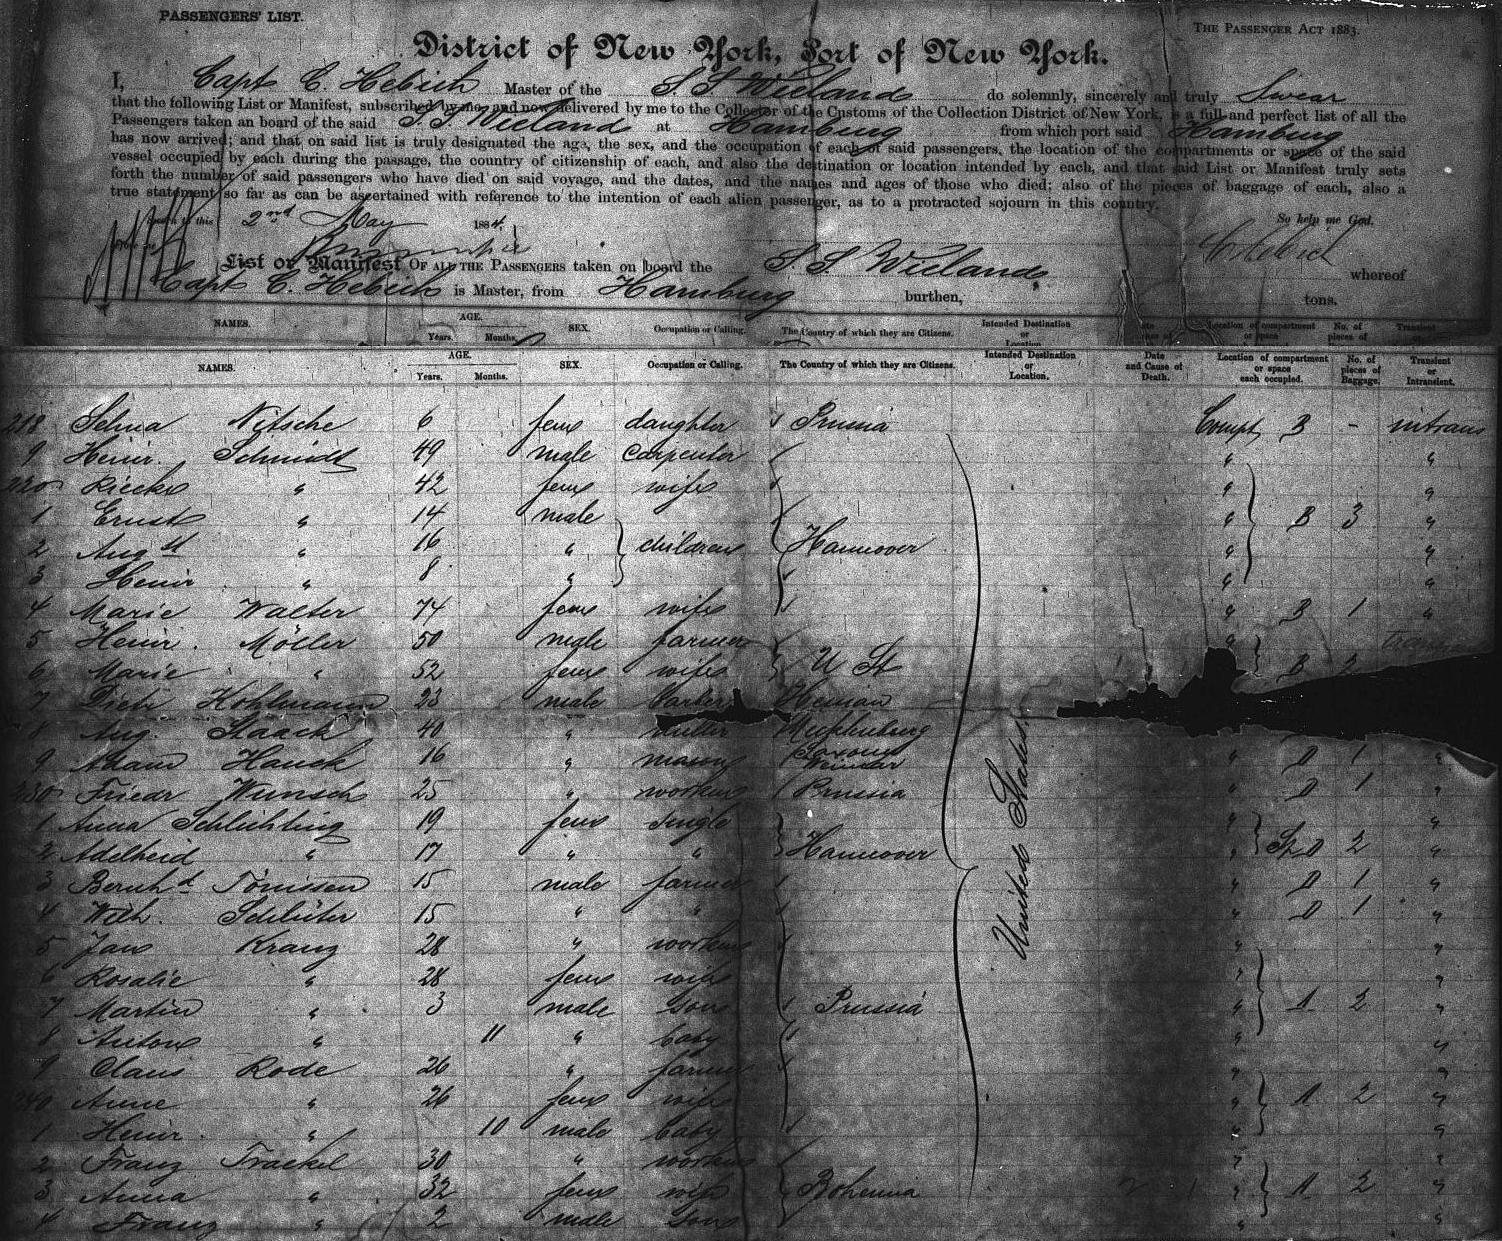 PASSENGERS' LIST.
THE PASSENGER ACT 1883.
District of New York, Port of New York.
I, Capt C. Hebich Master of the S. S Wieland do solemnly, sincerely and truly Swear
that the following List or Manifest, subscribed by me, and now delivered by me to the Collector of the Customs of the Collection District of New York, is a full and perfect list of all the
Passengers taken an board of the said S. S Wieland at Hamburg from which port said Hamburg
has now arrived; and that on said list is truly designated the age, the sex, and the occupation of each of said passengers, the location of the compartments or space of the said
vessel occupied by each during the passage, the country of citizenship of each, and also the destination or location intended by each, and that said List or Manifest truly sets
forth the number of said passengers who have died on said voyage, and the dates, and the names and ages of those who died; also of the pieces of baggage of each, also a
true statement so far as can be ascertained with reference to the intention of each alien passenger, as to a protracted sojourn in this country.
to this 2nd May 1884. So help me God.
C Hebich
List or Manifest OF ALL THE PASSENGERS taken on board the S. S. Wieland whereof
Capt C. Hebich is Master, from Hamburg burthen, tons.
NAMES. AGE. Years. Months. SEX. Occupation or Calling. The Country of which they are Citizens. Intended Destination or Location. Location of compartment or space No. of pieces of Transient
NAMES. AGE. Years. Months. SEX. Occupation or Calling. The Country of which they are Citizens. Intended Destination or Location. Date and Cause of Death. Location of compartment or space each occupied. No. of pieces of Baggage. Transient or Intransient.
218 Selma Nitsche 6 fem daughter Prussia Compt B - intrans
9 Heinr. Schmidt 49 male carpenter "  "
220 Riecke " 42 fem wife " "
1 Ernst " 14 male " B 3 "
2 Augst " 16 " children Hannover " "
3 Heinr " 8 " " "
4 Marie Walter 74 fem wife " B 1 "
5 Heinr. Möller 50 male farmer "
6 Marie " 52 fem wife U St B 2
7 Dietr Kohlmann 23 male Hessian
8 Aug. Staack 40 "
9 Adam Hauck 16 " mason Saxony Weimar " D 1 "
230 Friedr Wunsch 25 " worker Prussia " D 1 "
1 Anna Schlichting 19 fem single " "
2 Adelheid " 17 " " Hannover " D 2 "
3 Bernhd Tönissen 15 male farmer " D 1 "
4 Wilh. Schlüter 15 " " " D 1 "
5 Jan Kranz 28 " workm " "
6 Rosalie " 28 fem wife " "
7 Martin " 3 male son Prussia " A 2 "
8 Anton " 11 " baby " "
9 Claus Rode 26 " farmer " "
240 Anne " 26 fem wife " A 2 "
1 Heinr. " 10 male baby " "
2 Franz Trackel 30 " workm " "
3 Anna " 32 fem wife Bohemia " A 2 "
4 Franz " 2 male son " "
United States.